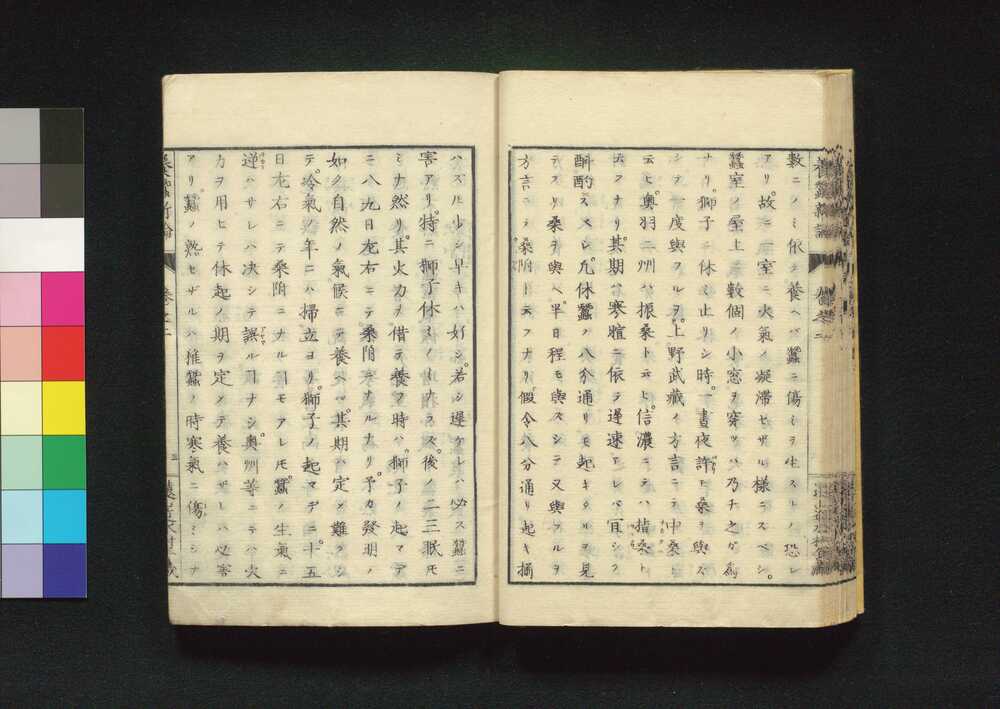 數ニノミ依テ養ヘバ蠶ニ傷ミヲ生スルノ恐レ
アリ。故ニ室ニ火氣ノ凝滯セザル樣ニスベシ。
蠶室ノ屋上ヘ數個ノ小窓ヲ穿ツハ乃チ之ガ爲
ナリ。獅子ニ休ミ止リシ時。一晝夜許ト桑ヲ與ス
シテ一度與フルヲ。上野武藏ノ方言ニテ中桑ト
云ヒ。奧羽二州ハ振桑ト云ヒ。信濃ニテハ指桑ト
云フナリ。其期ハ寒暄ニ依テ遲速アレバ。宜シク
酙酌スベシ。凢休蠶ノ八分通リモ起キタルヲ見
テ。スリ桑ヲ與ヘ。半日程モ與スシテ又與フルヲ
方言ニテ桑附トモ云フナリ。假令八分通リ起キ揃
ハズ𪜈少シ早キハ好シ。若シ遲ケレハ必ス蠶ニ
害アリ。特ニ獅子休ミノミナラズ。後ノ二三眠モ
ミナ然リ。其火力ヲ借テ養フ時ハ。獅子ノ起マデ
ニ八九日左右ニテ桑附ニナルナリ。予カ發明ノ
如ク自然ノ氣候ニテ養ヘバ。其期ハ定メ難クシ
テ。冷氣ノ年ニハ掃立ヨリ。獅子ノ起マデニ。十五
日左右ニテ桑附ニナルヿモアレ𪜈。蠶ノ生氣ニ
逆ハサレハ決シテ誤ルヿナシ。奧州等ニテハ火
力ヲ用ヒテ休起ノ期ヲ定メテ養ハザレハ必害
アリ。蠶ノ熟セザルハ推蠶ノ時寒氣ニ傷ミシナ
養蠶新論 卷之二